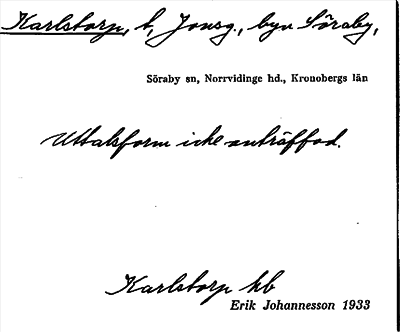 Karlstorp, t, Jonsg., byn Söraby,
Söraby sn, Norrvidinge hd., Kronobergs län
Uttalsform icke anträffad.
Karlstorp hb
Erik Johannesson 1933